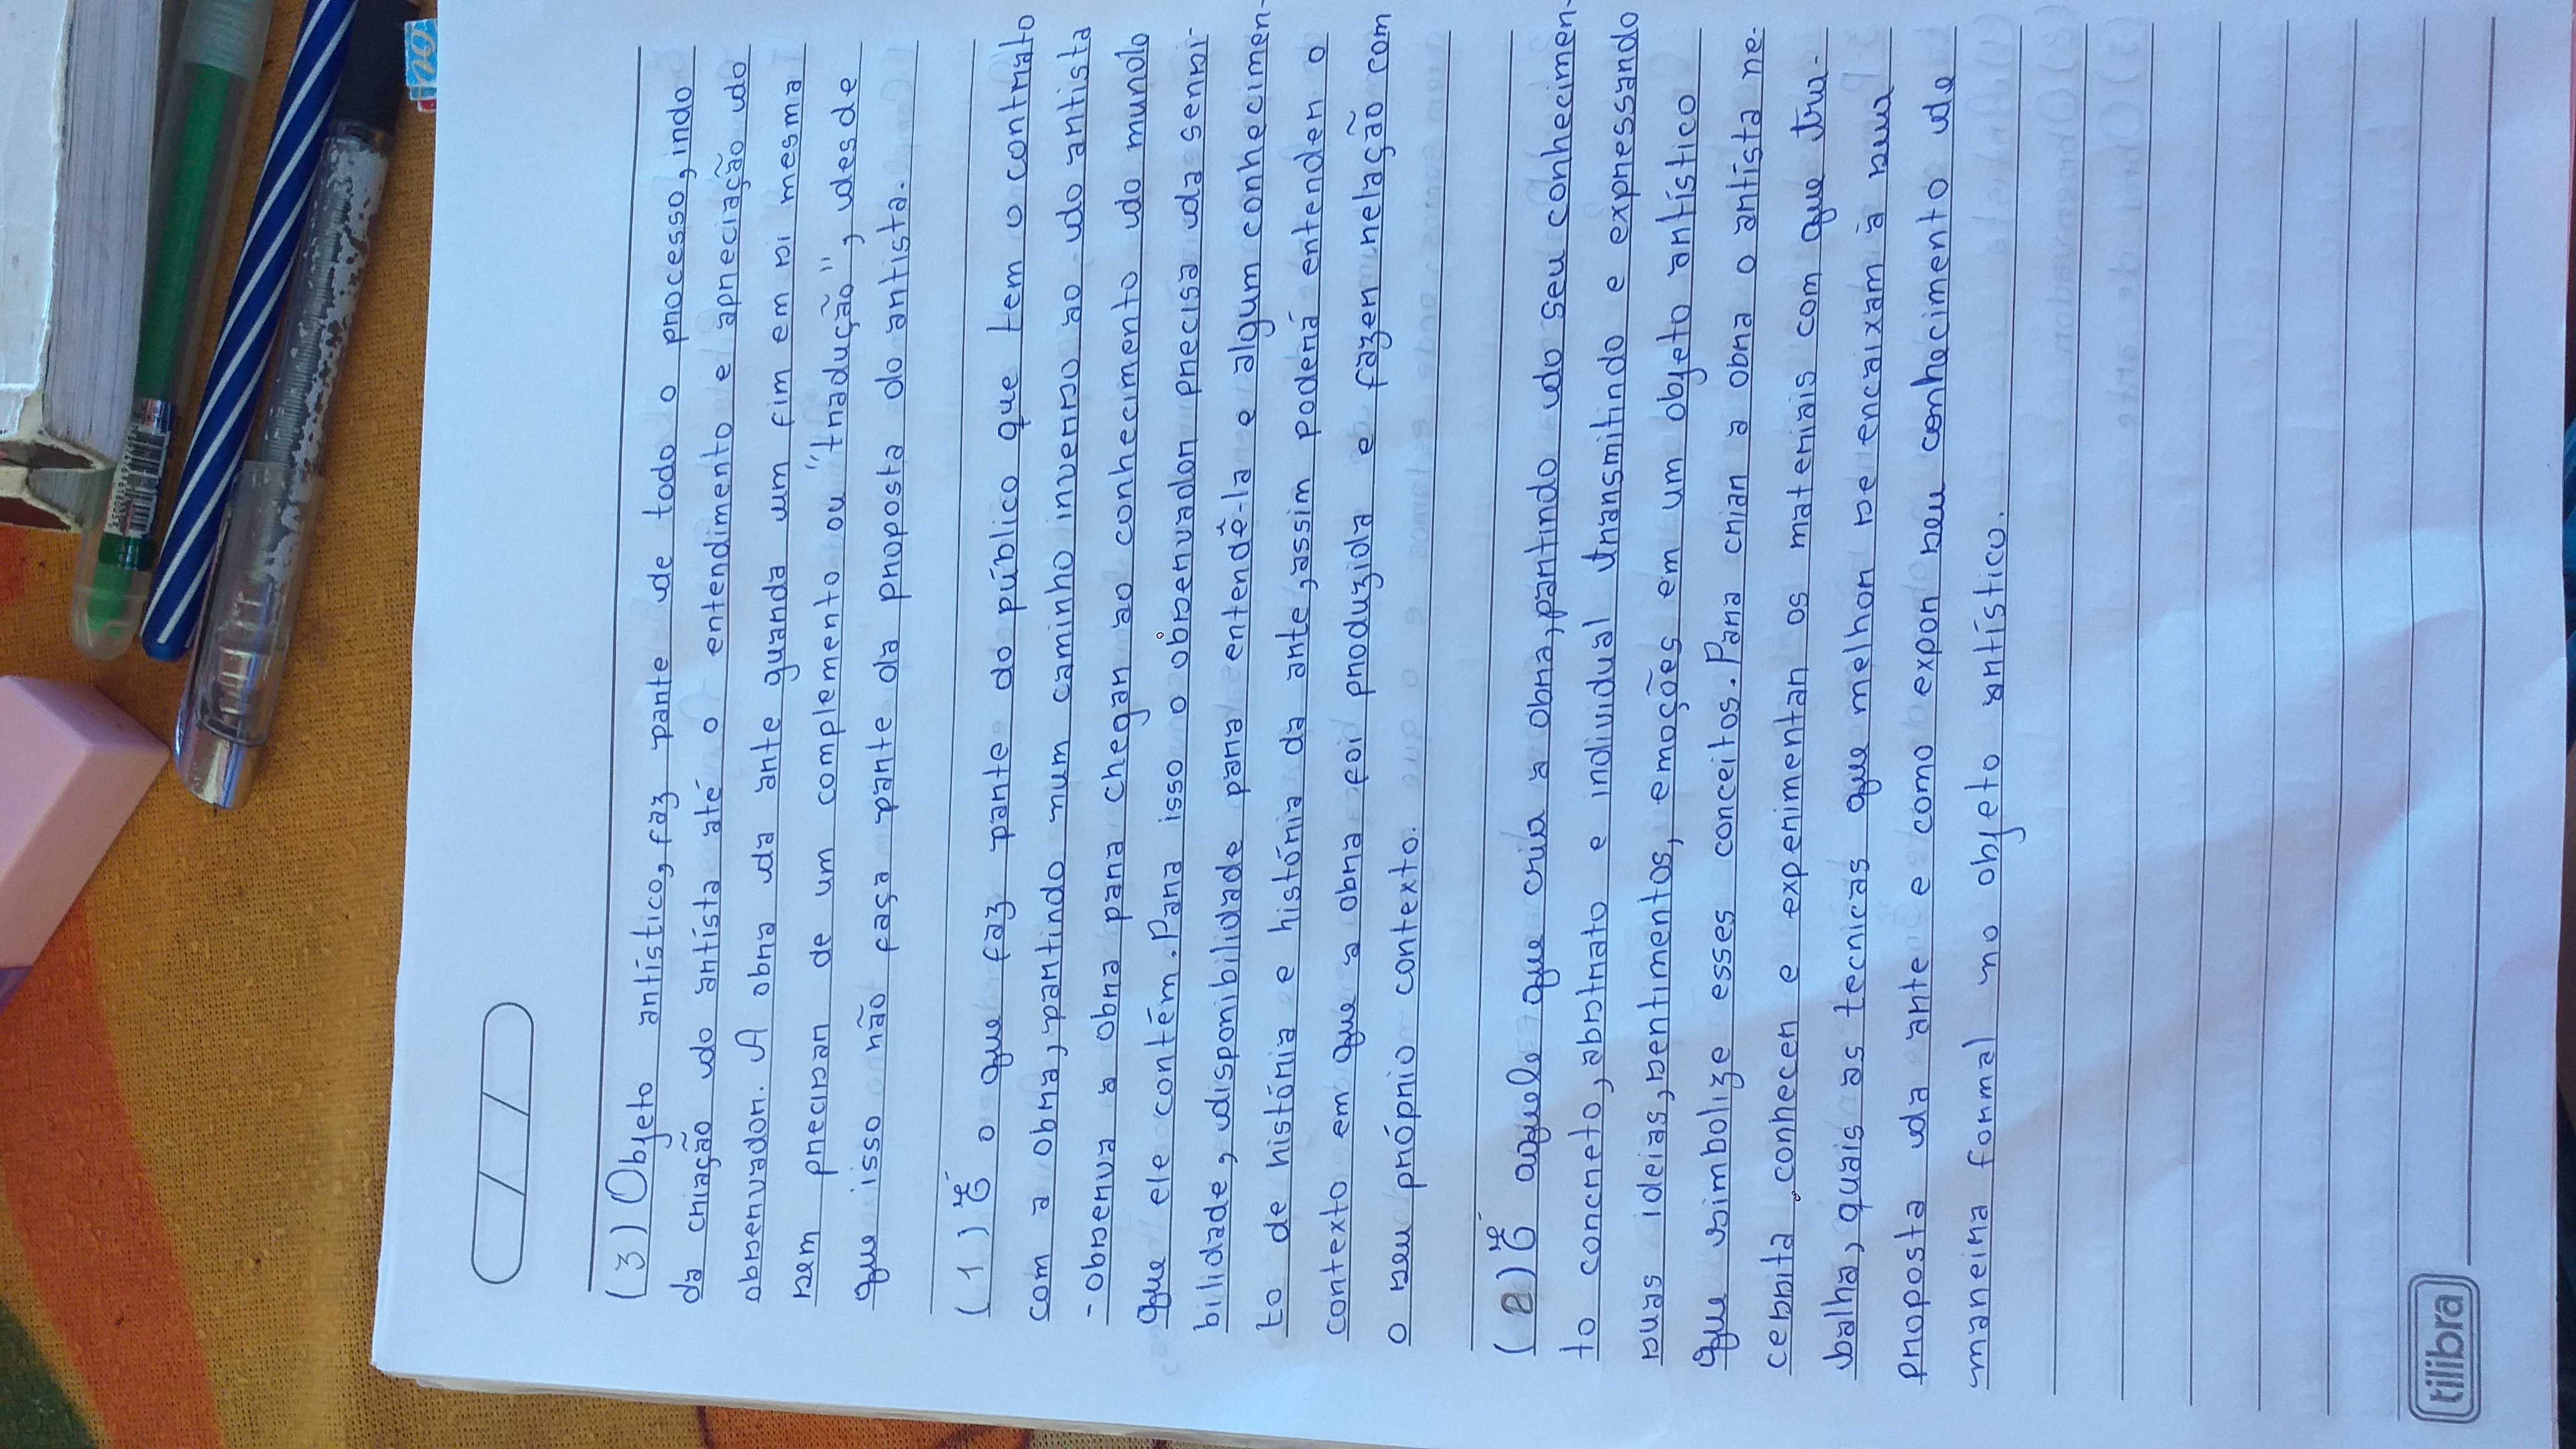 (3) Objeto artístico, faz parte de todo o processo, indo
da criação do artísta até o entendimento e apreciação do
observador. A obra da arte guarda um fim em si mesma
sem precisar de um complemento ou "tradução", desde
que isso não faça parte da proposta do artista.
(1) É o que faz parte do público que tem o contrato
com a obra, partindo num caminho inverso ao do artista
- observa a obra para chegar ao conhecimento do mundo
que ele contém. Para isso o observador precisa da sensi-
bilidade, disponibilidade para entendê-la e algum conhecimen-
to de história e história da arte, assim poderá entender o
contexto em que a obra foi produzida e fazer relação com
o seu próprio contexto.
(2) É aquele que cria a obra, partindo do seu conhecimen-
to concreto, abstrato e individual transmitindo e expressando
suas ideias, sentimentos, emoções em um objeto artístico
que simbolize esses conceitos. Para criar a obra o artísta ne-
cessita conhecer e experimentar os materiais com que tra-
balha, quais as tecnicas que melhor se encaixam à sua
proposta da arte e como expor seu conhecimento de
maneira formal no objeto artístico.
tilibra